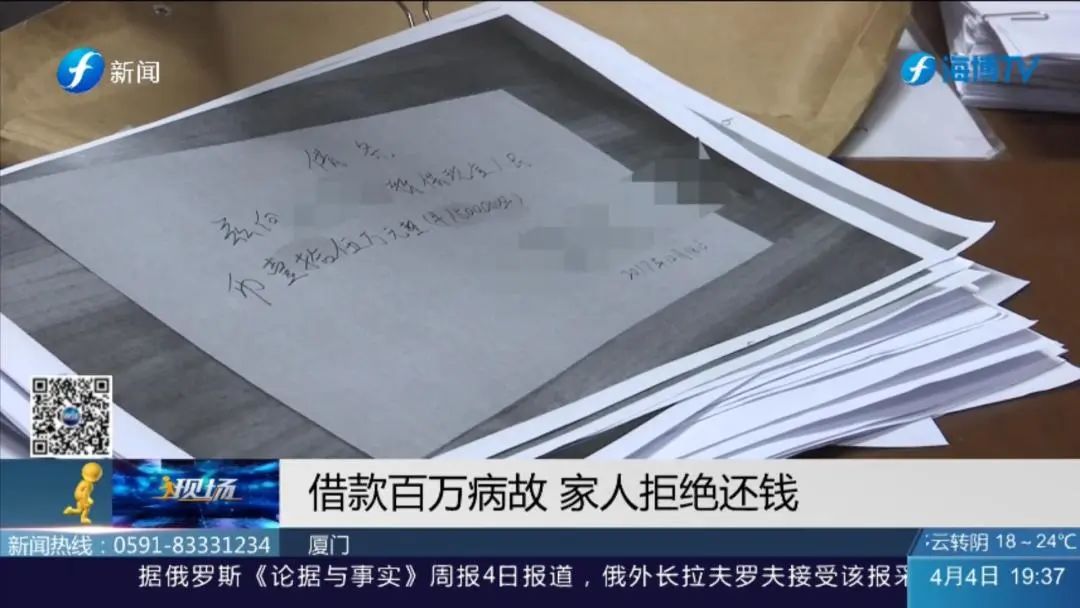 新闻
海博TV
借条
兹向
借款金人民
币壹拾伍万元整(¥150000)
现场
借款百万病故 家人拒绝还钱
新闻热线：0591-83331234
厦门
云转阴 18～24℃
据俄罗斯《论据与事实》周报4日报道，俄外长拉夫罗夫接受该报采
4月4日 19:37